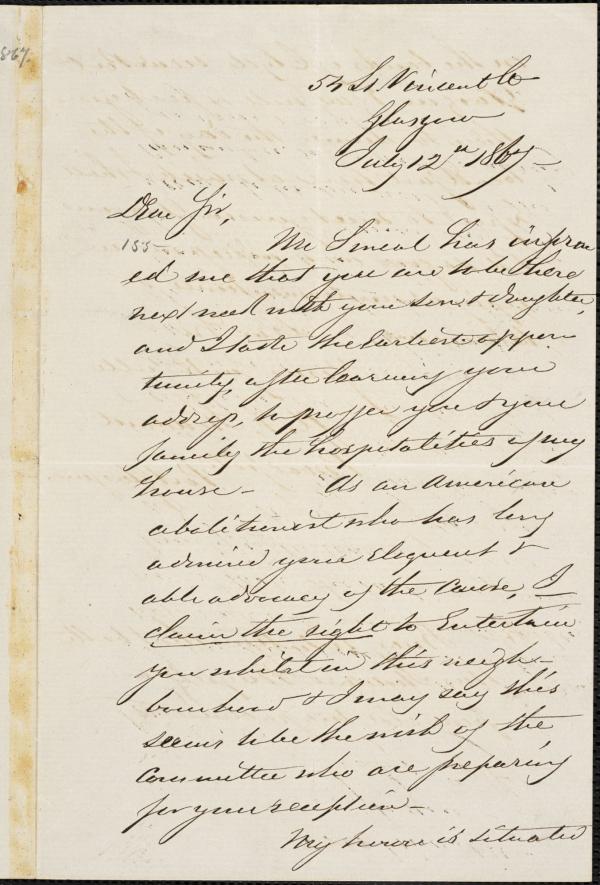 867.
54 St Vincent St
Glasgow
July 12th 1867 –
Dear Sir,
155 –
Mr Smeal has inform
ed me that you are to be here
next week with your son & daughter,
and I take the Earliest oppor
tunity, after learning your
address, to proffer you & your
family the hospitalities of my
house – As an American
abolitionist who has long
admired your Eloquent &
able advocacy of the cause, I
claim the right to Entertain
you whilst in this neigh–
bourhood & I may say this
seems to be the wish of the
Committee who are preparing
for your reception –
My house is situated